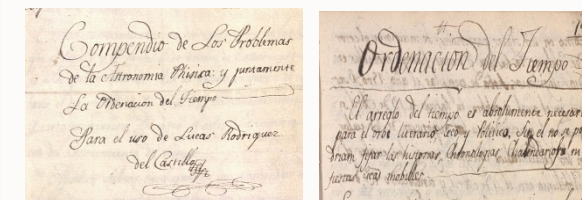 Compendio de Los Problemas
de la Astronomia Phisica: y juntamente
La Ordenacion del Tiempo
Para el uso de Lucas Rodriguez
del Castillo
Ordenacion del Tiempo
El arreglo del tiempo es absolutamente necesar
para el orbe literario, seco y Politico. Sin el no se po
drian fixar las historias, Chronologias,
fiestas, ò mobiles